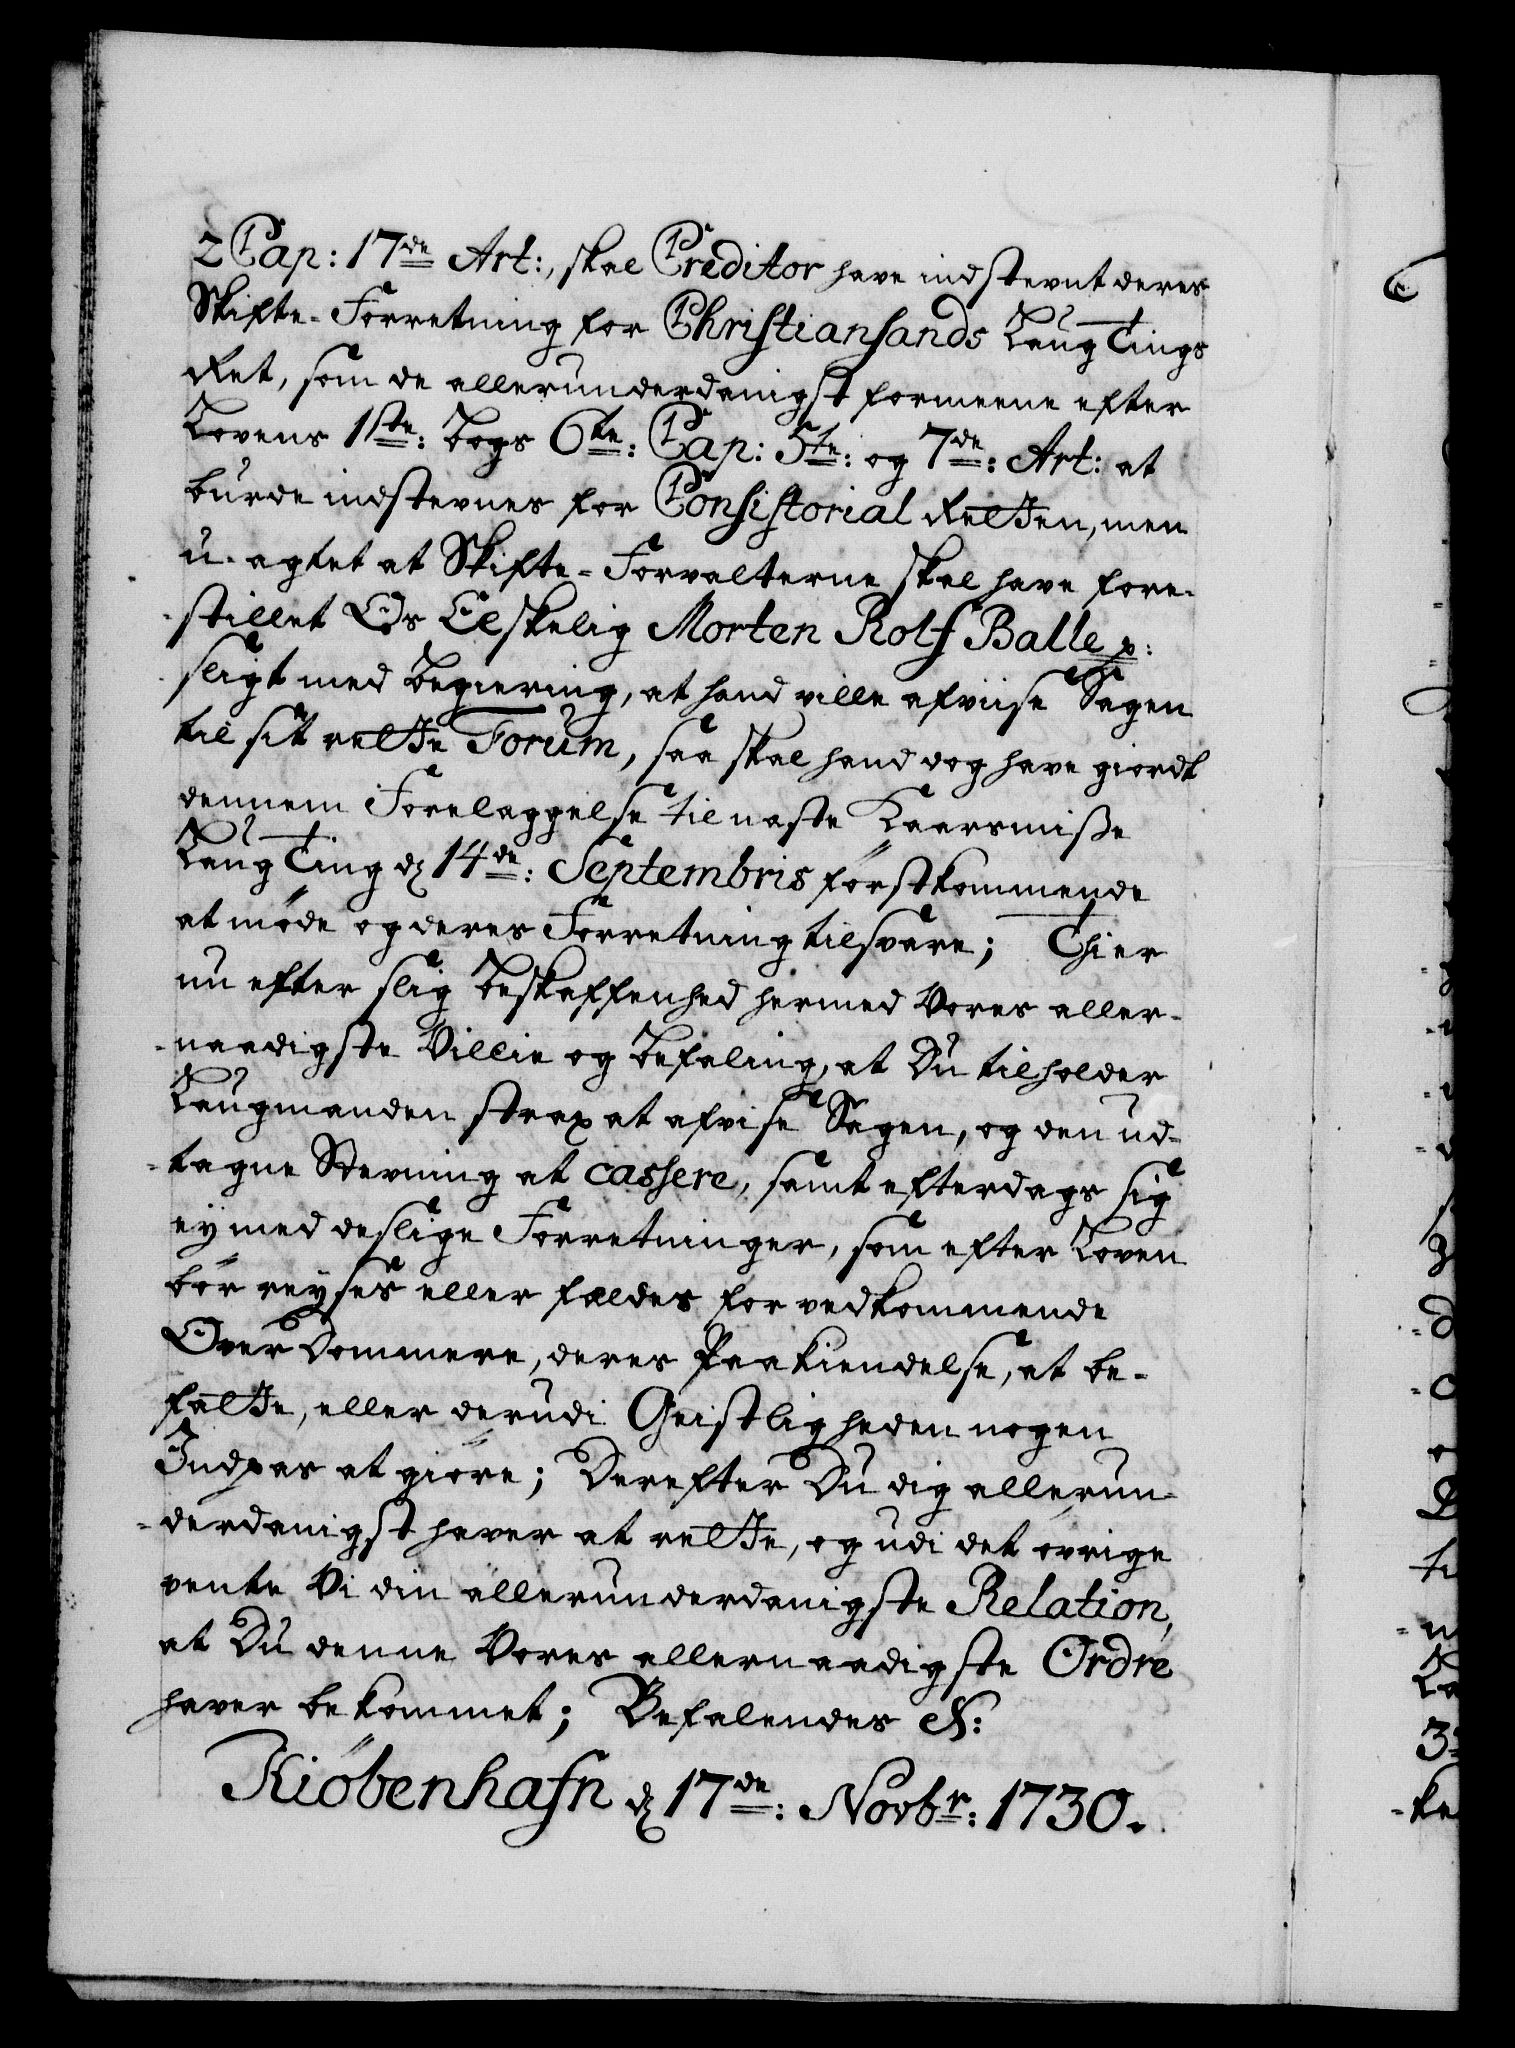 2 Cap: 17de Art:, skal Creditor have indstevnt deres
Skifte-Forretning for Christiansands Laug Tings
Ret, som de allerunderdanigst formeene efter
Lovens 1ste: Bogs 6te: Cap: 5te: og 7de: Art: at
burde indstevnes for Consistorial Retten, men
u-agtet at Skifte-Forvalterne skal have fore-
-stillet Os Elskelig Morten Rolf Balle p:
sligt med Begiering, at hand ville afviise Sagen
til sit rette Forum, saa skal hand dog have giordt
dennem Forelaggelse til naste Kaarsmisse
Laug Ting d 14de: Septembris förstkommende
at möde og deres Forretning tilsvare; Thi er
nu efter slig Beskaffenhed hermed Vores aller-
-naadigste Villie og Befaling, at Du tilholder
Laugmanden strax at afvise Sagen, og den ud-
-tagne Stevning at cassere, samt efterdags sig
ey med deslige Forretninger, som efter Loven
bör reyses eller fældes for vedkommende
Over Dommere, deres Paakiendelse, at be-
fatte, eller derudi Geistligheden nogen
Indpas at giöre; Derefter Du dig allerun-
-derdanigst haver at rette, og udi det ovrige
vente Vi din allerunderdanigste Relation,
at Du denne Vores allernaadigste Ordre
haver bekommet; Befalendes &:
Kiöbenhafn d 17de: Novbr: 1730.